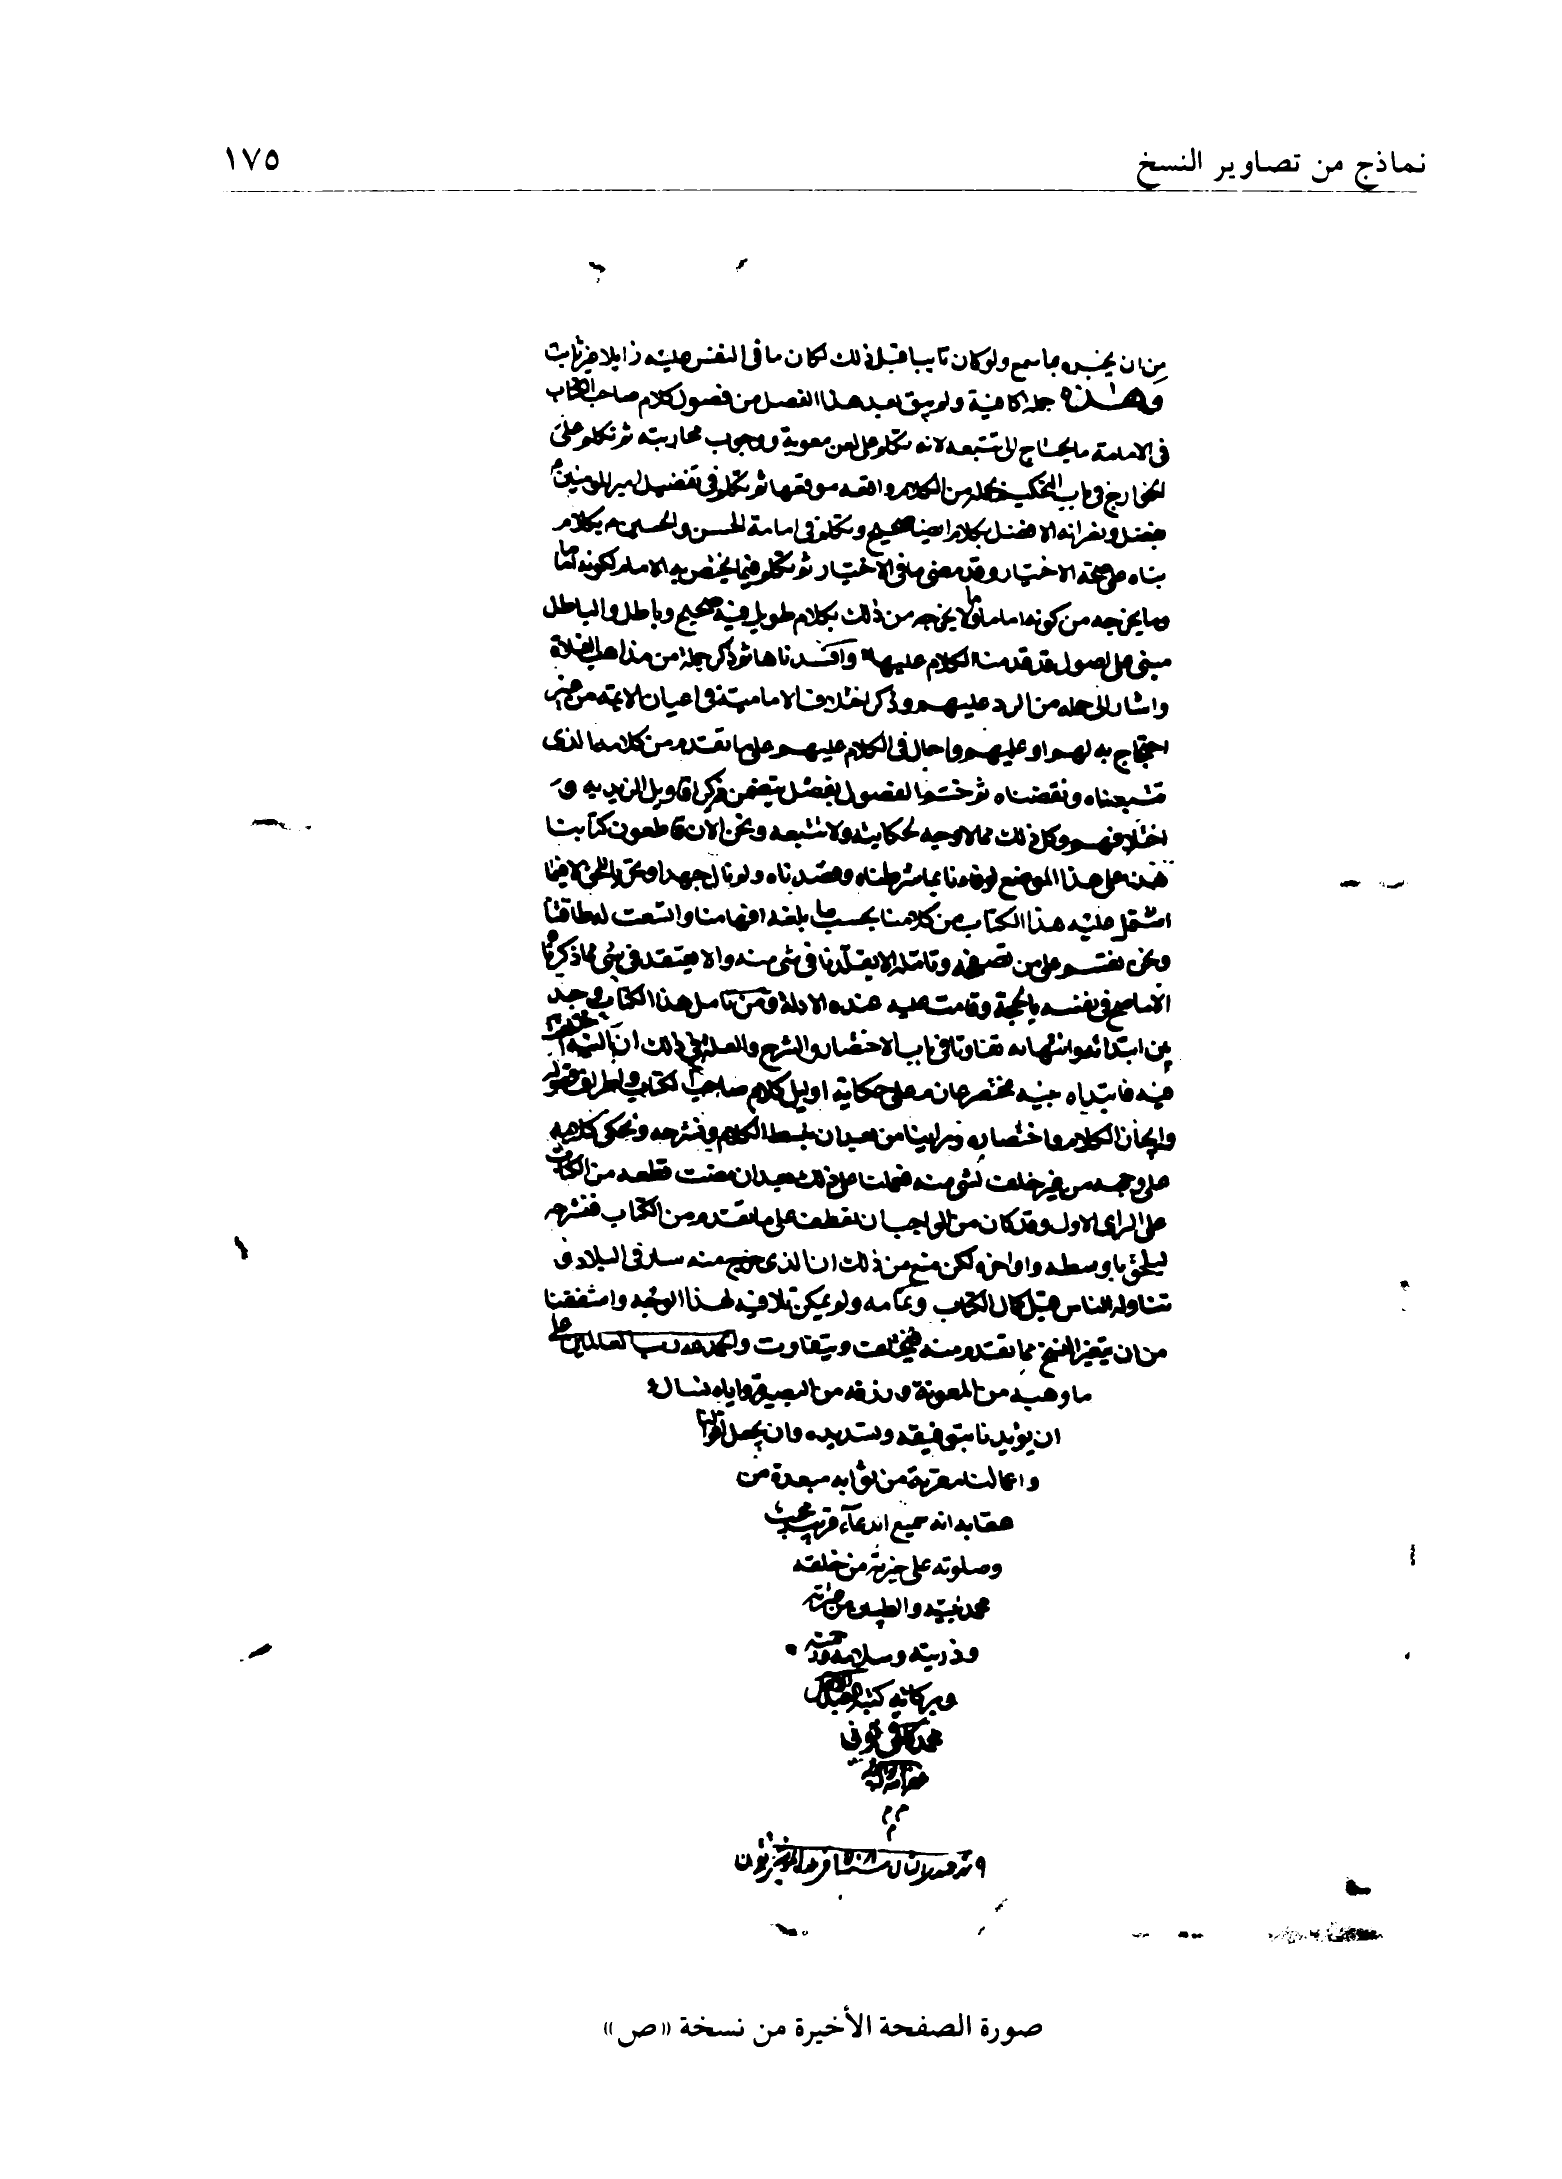 نماذج من تصاوير النسخ
١٧٥
من ان يخبره بما سمع ولو كان تايبا قبل ذلك لكان ما في النفس عليه زايلا غير ثابت
وهذه جملة كافية ولم يبق بعد هذا الفصل من فصول كلام صاحب الكتاب
في الامامة ما يحتاج الى تتبعه لانه تكلم على لعن معوية ووجوب محاربته ثم تكلم على
الخوارج في باب التحكيم بجملة من الكلام واقعه موقعها ثم تكلم في تفضيل امير المومنين
بفضل ونصرانه الافضل بكلام ايضا صحيح وتكلم في امامة الحسن والحسين بكلام
بناه على صحة الاختيار وقد مضى ما في الاختيار ثم تكلم فيما يختص به الامام لكونه اماما
وما يخرجه من كونه اماما وما لا يخرجه من ذلك بكلام طويل فيه صحيح وباطل والباطل
مبنى على اصول قد قدمنا الكلام عليها وافسدناها ثم ذكر جملة من مذاهب الغلاة
واشار الى جمله من الرد عليهم وذكر اختلاف الامامية في اعيان الايمه من غير
احتجاج به لهم او عليهم واحال في الكلام عليهم على ما تقدم من كلامه الذى
تتبعناه ونقضناه ثم ختم الفصول بفصل يتضمن ذكر اقاويل الزيديه و
اختلافهم وكل ذلك مما لا وجه لحكايته ولا تتبعه ونحن الان قاطعون كتابنا
هذا على هذا الموضع لوفاءنا بما شرطناه وقصدناه ولم نال جهدا وتحريا للحق فيما
اشتمل عليه هذا الكتاب من كلامنا بحسب ما بلغه افهامنا واتسعت له طاقتنا
ونحن نقسم على من تصفحه وتامله الا يقلدنا في شى منه والا يعتقد في شى مما ذكرناه
الا ما صح في نفسه بالحجة وقامت عليه عنده الادلة ومن تامل هذا الكتاب وجد
بين ابتدائه وانتهائه تفاوتا في باب الاختصار والشرح والعلة في ذلك ان النية
فيه فابتداه بنية مختصر عازم على حكاية اوايل كلام صاحب الكتاب واطراف فصوله
وايجاز الكلام واختصاره وراينا من بعد ان نبسط الكلام ونشرحه ونحكى كلامه
على وجهه من غير حذف لشى منه فعملنا على ذلك بعد ان مضت قطعه من الكتاب
على الراى الاول وقد كان من الواجب ان نعطف على ما تقدم من الكتاب فنشرحه
ليلحق باوسطه واواخره ولكن منع من ذلك ان الذى خرج منه سار في البلاد و
تناوله الناس قبل كمال الكتاب وتمامه ولم يمكن تلافيه لهذا الوجه واشفقنا
من ان يتغير النسخ مما تقدم منه فيختلف ويتفاوت والحمد لله رب العالمين على
ما وهبه من المعونة ورزقه من البصيرة واياه نسال
ان يؤيدنا بتوفيقه وتسديده وان يجعل اقوالنا
واعمالنا مقربة من ثوابه مبعدة من
عقابه انه سميع الدعاء قريب مجيب
وصلوته على خيرته من خلقه
محمد نبيه والطيبين من عترته
وذريته وسلامه ورحمته
وبركاته كتبه
محمد
صورة الصفحة الأخيرة من نسخة «ص»